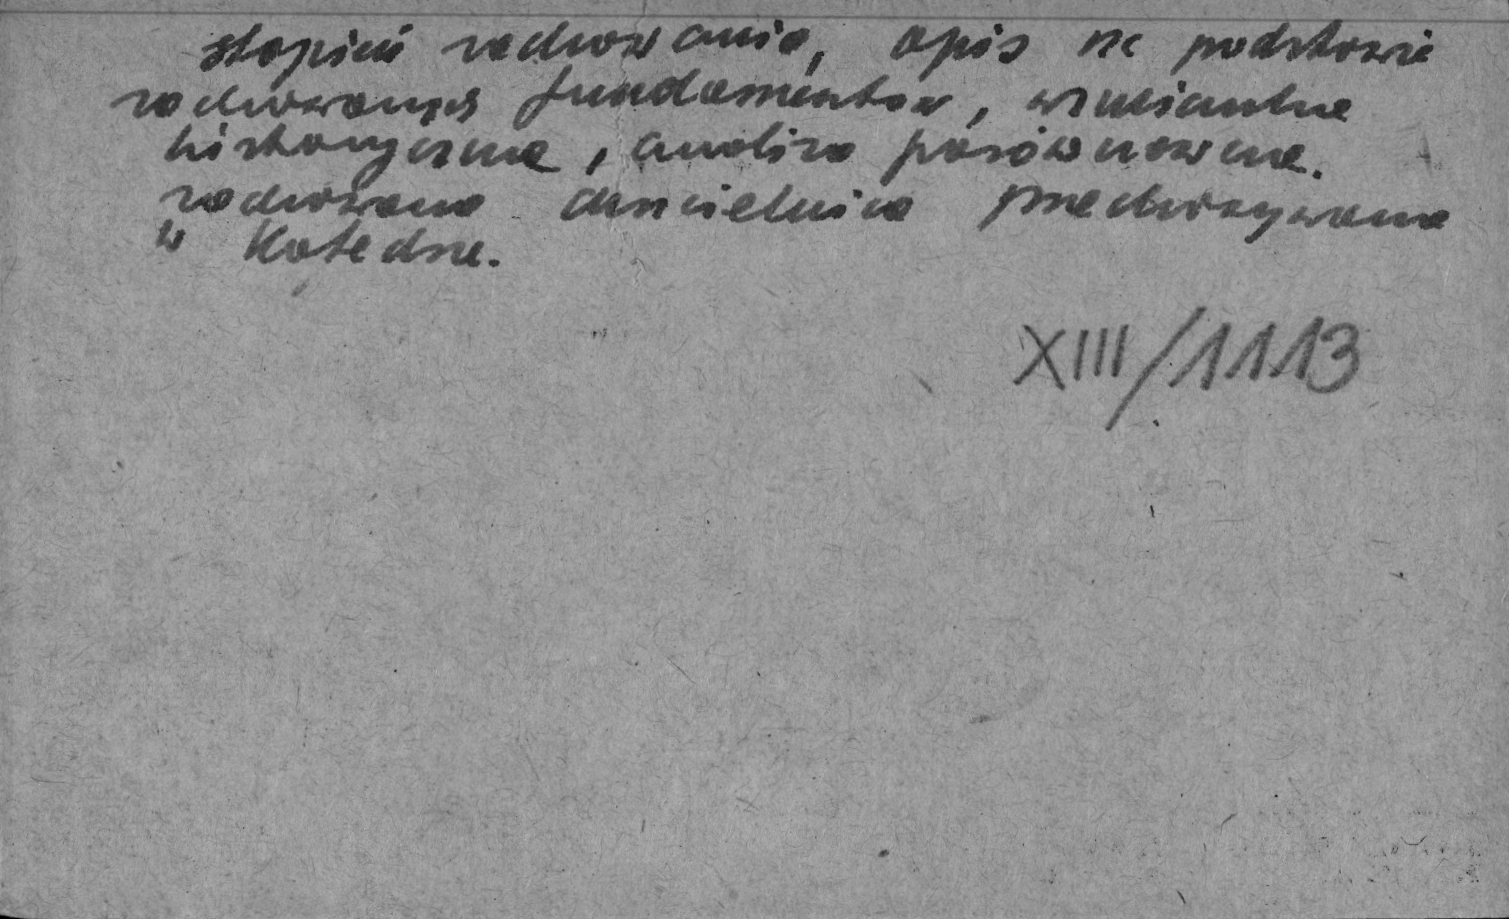 stopień zachowania, opis na podstawie
zachowanych fundamentów, wzmianka
historyczna, analiza porównawcza.
zachowana chrzcielnica przechowywana
w Katedrze.
XIII/1113